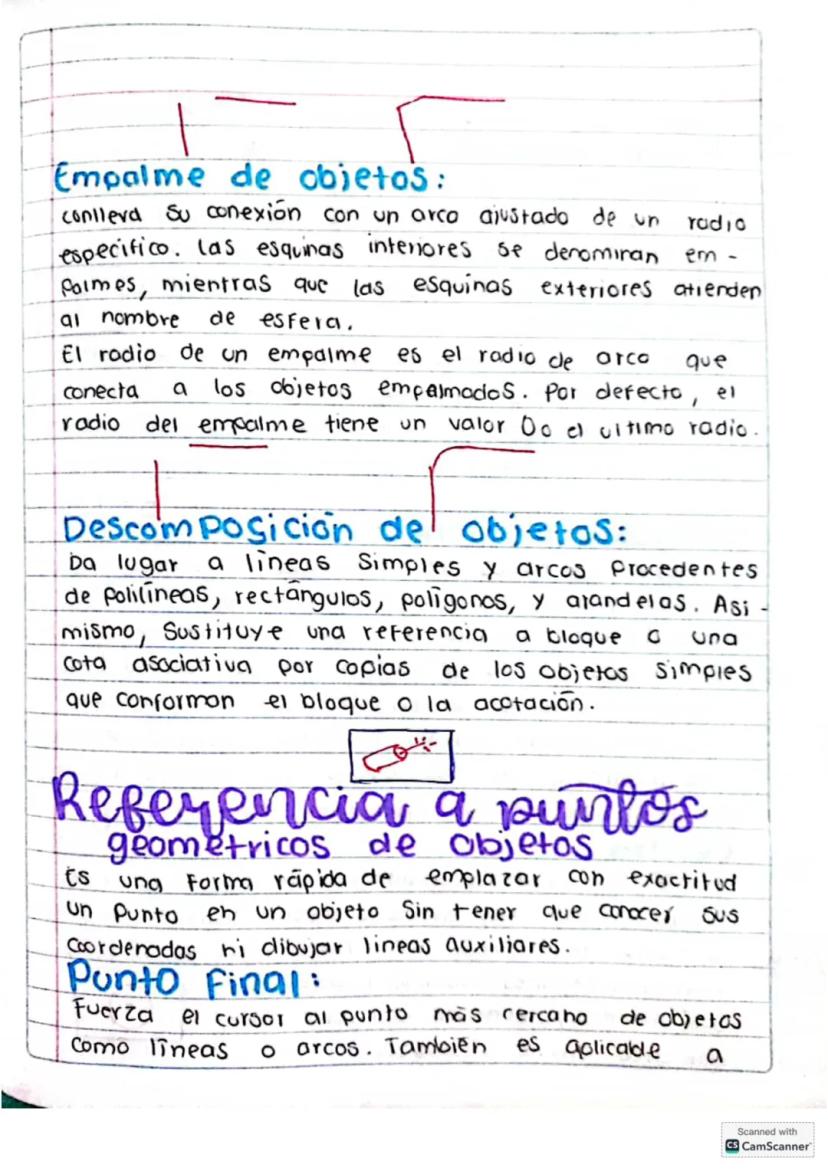 Empalme de objetos:
conlleva su conexión con un arco ajustado de un radio
especifico. Las esquinas interiores se denominan em-
palmes, mientras que las esquinas exteriores atienden
al nombre de esfera.
El radio de un empalme es el radio de arco que
conecta a los objetos empalmados. Por defecto, el
radio del empalme tiene un valor 0 o el ultimo radio.
Descomposición de objetos:
Da lugar a líneas simples y arcos procedentes
de polilíneas, rectángulos, polígonos, y arandelas. Asi-
mismo, sustituye una referencia a bloque o una
cota asociativa por copias de los objetos simples
que conforman el bloque o la acotación.
Referencia a puntos
geométricos de objetos
Es una forma rápida de emplazar con exactitud
un punto en un objeto sin tener que conocer sus
coordenadas ni dibujar lineas auxiliares.
Punto Final:
Fuerza el cursor al punto más cercano de objetos
como líneas o arcos. También es aplicable a
Scanned with
CS CamScanner